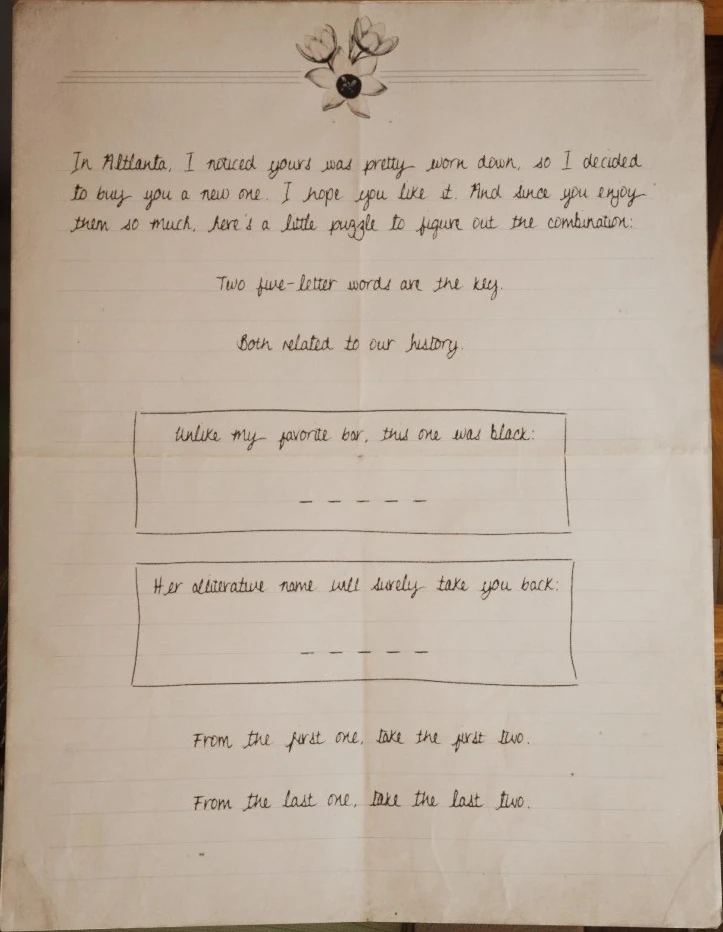 In Altlanta, I noticed yours was pretty worn down, so I decided
to buy you a new one. I hope you like it. And since you enjoy
them so much, here's a little puzzle to figure out the combination:
Two five-letter words are the key.
Both related to our history.
Unlike my favorite bar, this one was black:
_ _ _ _ _
Her alliterative name will surely take you back:
_ _ _ _ _
From the first one, take the first two.
From the last one, take the last two.